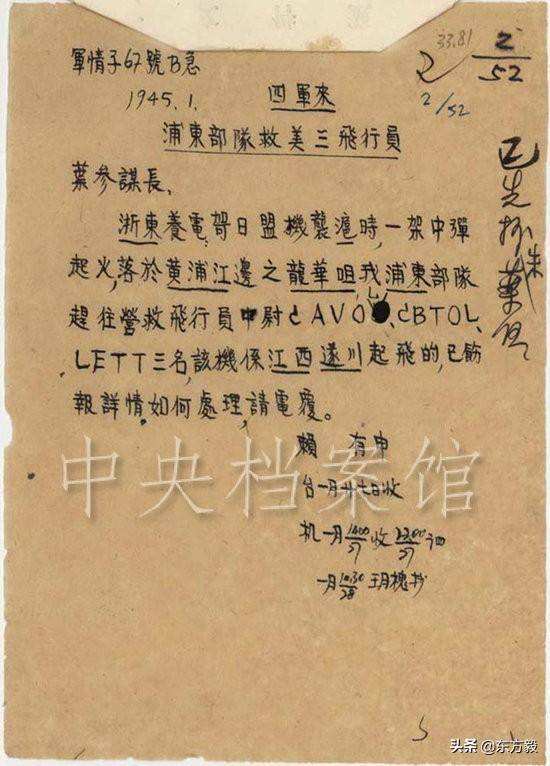 33.81
2
2/52
2/52
軍情子67號B急
1945.1. 四軍來
浦東部隊救美三飛行員
葉參謀長、
浙東養電哿日盟機襲滬時,一架中彈
起火,落於黄浦江邊之龍華咀,我浦東部隊
趕往營救飛行員中尉
LETT三名,該機係江西遂川起飛的,已飭
報詳情,如何處理,請電覆。
賴 有申
台一月廿七日收
机一月1400/27收2200/27
一月10.30/28
已先抄
中央档案馆
头条@东方毅